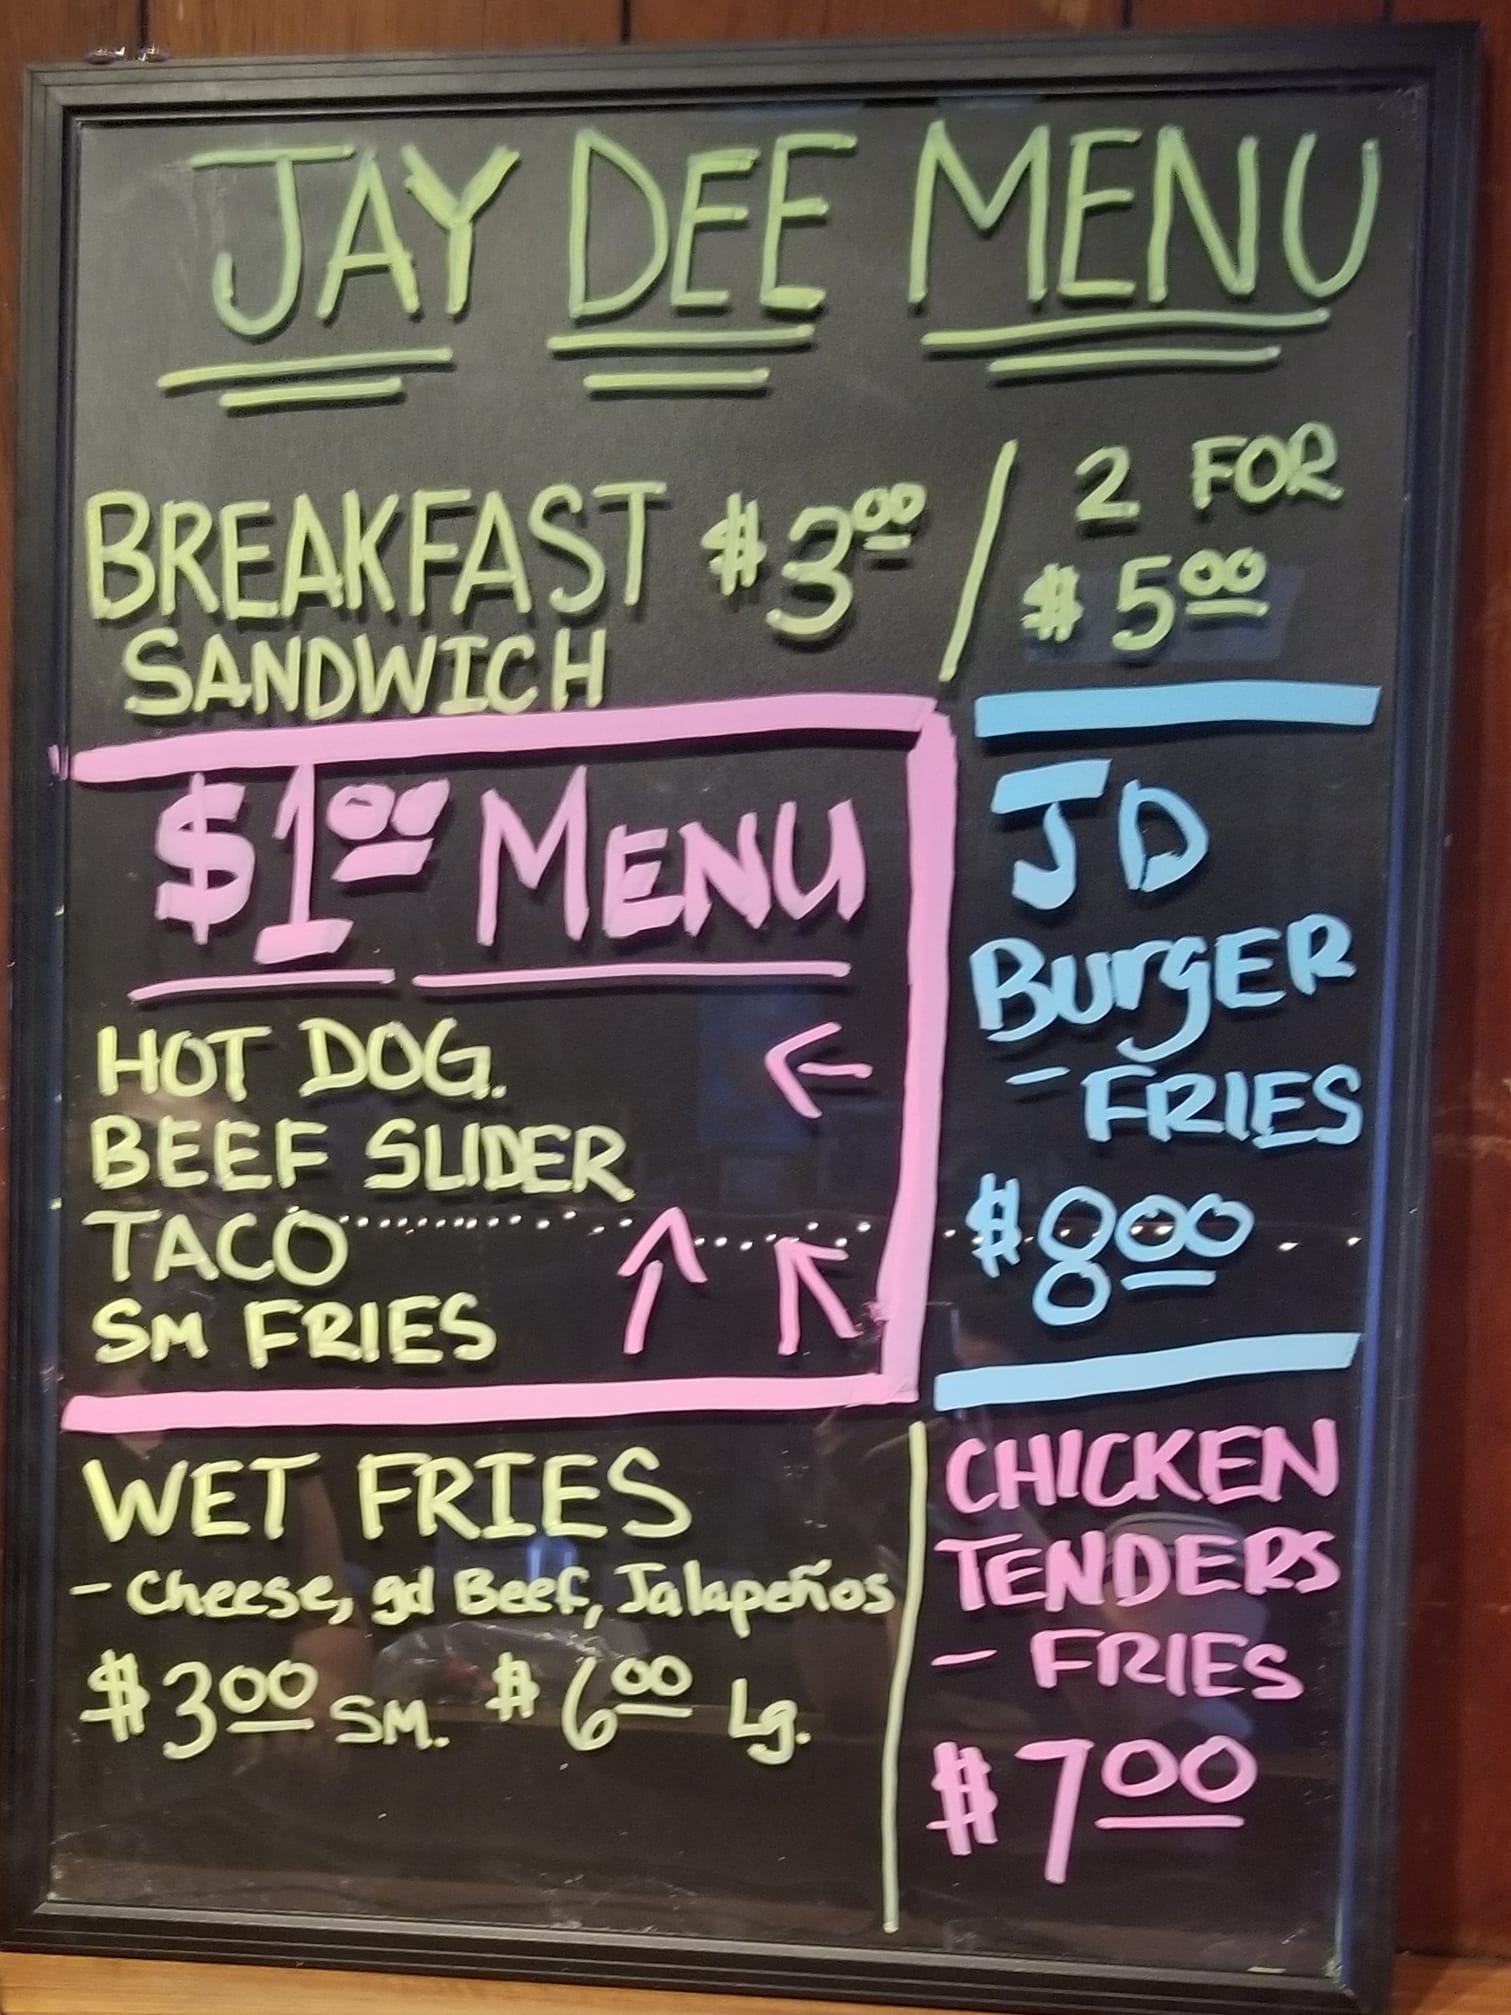 JAY DEE MENU
BREAKFAST $3.00 / 2 FOR
SANDWICH $5.00
$1.00 MENU
HOT DOG.
BEEF SLIDER
TACO
SM FRIES
JD
BURGER
- FRIES
$8.00
WET FRIES
- Cheese, gd Beef, Jalapeños
$3.00 SM. $6.00 Lg.
CHICKEN
TENDERS
- FRIES
$7.00